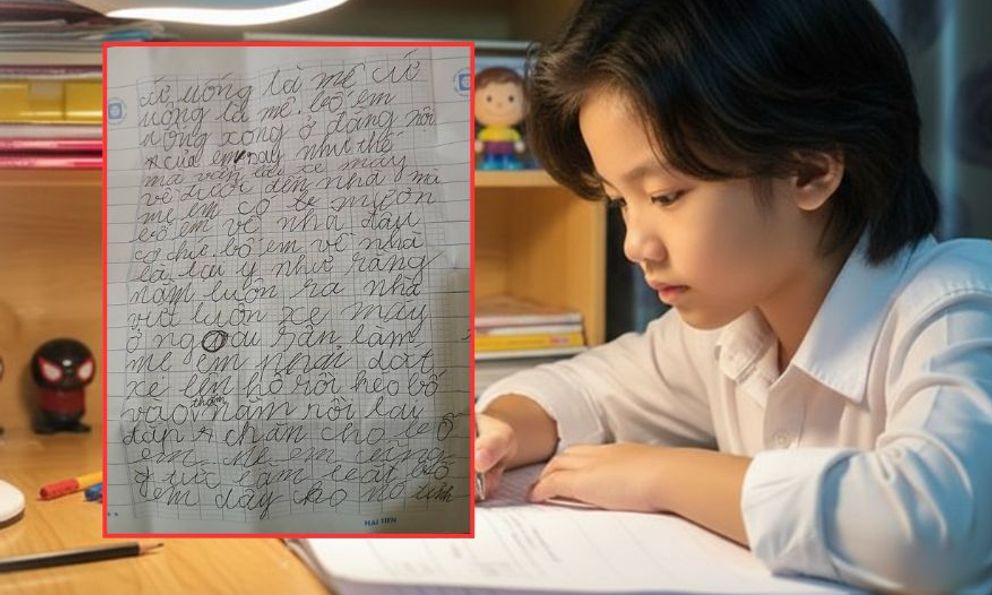 cứ uống là mê cứ
uống là mê. bố em
uống xong ở đằng nội
của em say như thế
mà vẫn lái xe máy
về đến nhà, mà
mẹ em có
bố em về nhà đâu
có chứ. bố em về nhà
là lưu ý như rằng
nằm luôn ra nhà
vứt luôn xe máy
ở ngoài sân làm
mẹ em phải dắt
xe lên hộ rồi kéo bố
vào thảm nằm rồi lại
đắp chăn cho bố
em. Mẹ em cũng
tức lắm bắt bố
em dậy cho nó tỉnh
HAI TIEN